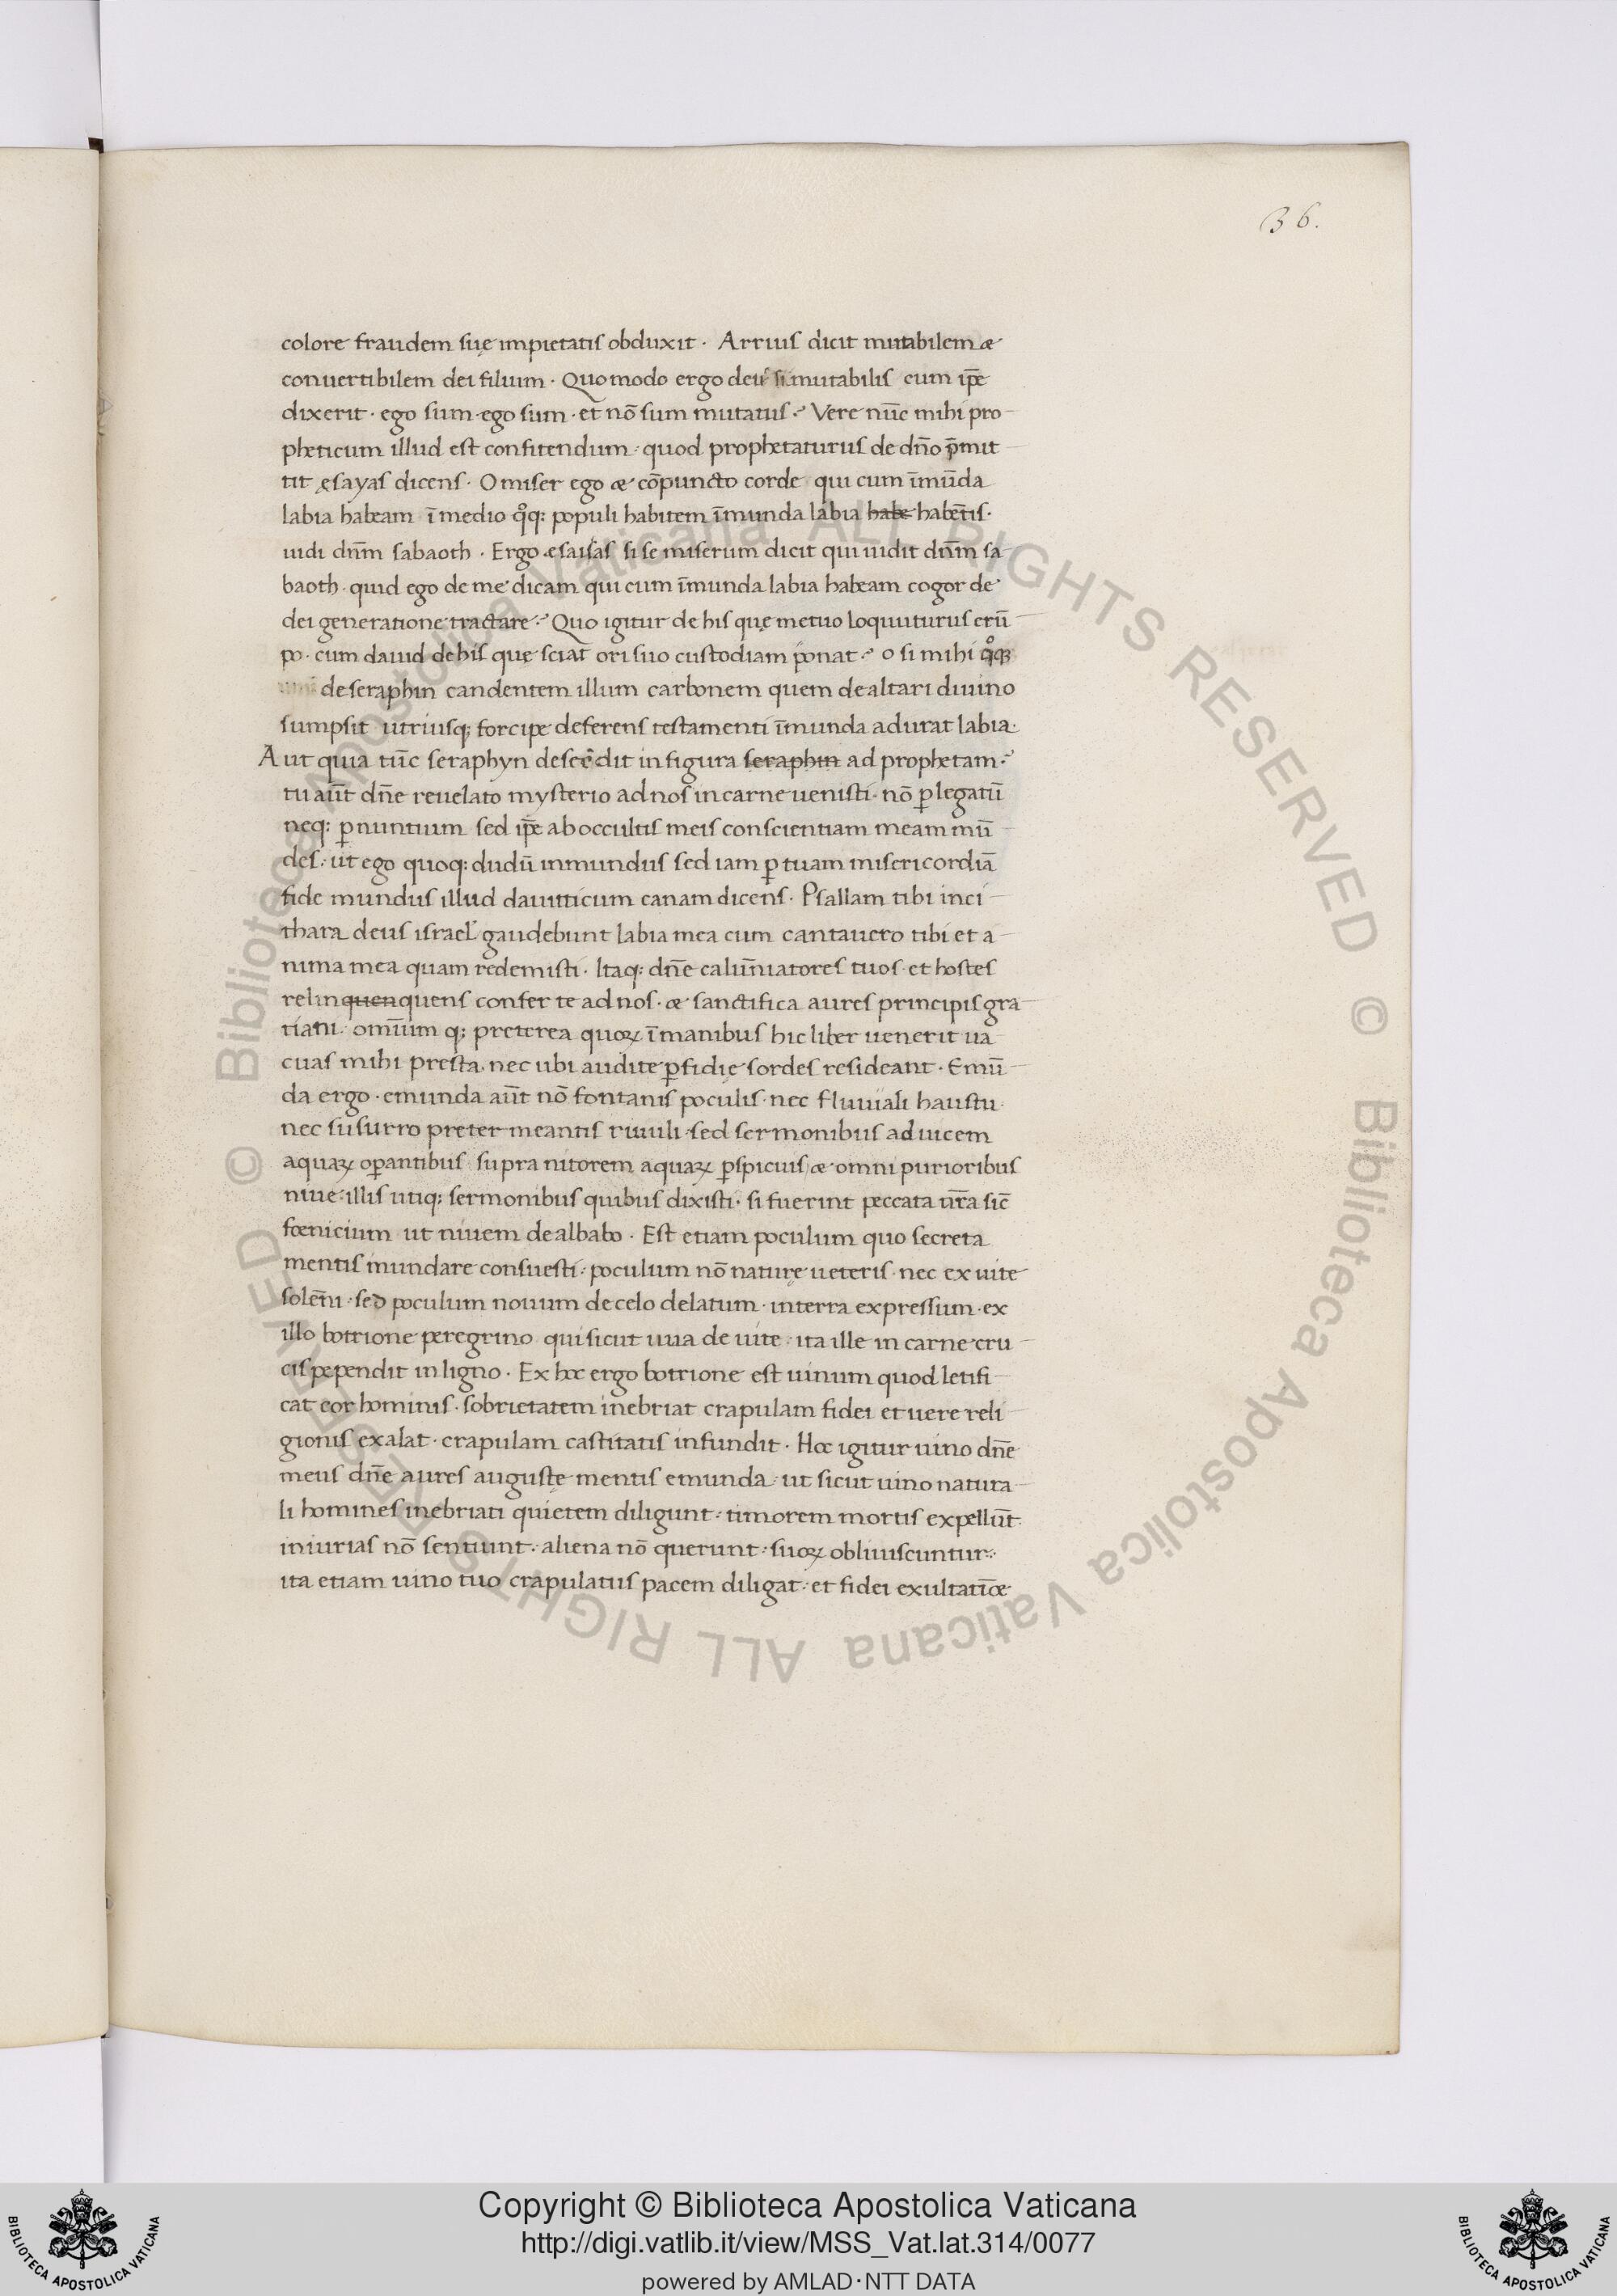 36.
colore fraudem suę impietatis obduxit · Arrius dicit mutabilem æ
conuertibilem dei filium · Quomodo ergo deus si mutabilis cum ip̄e
dixerit · ego sum · ego sum · et nō sum mutatus ·? Vere nūc mihi pro
pheticum illud est confitendum · quod prophetaturus de dn̄o p̄mit
tit ęsayas dicens · O miser ego æ cōpuncto corde qui cum īmūda
labia habeam ī medio qͦq; populi habitem īmunda labia habe habētis ·
uidi dn̄m sabaoth · Ergo esaisas si se miserum dicit qui uidit dn̄m sa
baoth · quid ego de me dicam qui cum īmunda labia habeam cogor de
dei generatione tractare ·? Quo igitur de his quę metuo loquuturus erū
po · cum dauid de his quę sciat ori suo custodiam ponat ·? o si mihi qͦq;
de seraphin candentem illum carbonem quem de altari diuino
sumpsit utriusq; forcipe deferens testamenti īmunda adurat labia ·
Aut quia tūc seraphyn descēdit in figura seraphin ad prophetam ·?
tu aūt dn̄e reuelato mysterio ad nos in carne uenisti · nō ꝑ legatū
neq; ꝑ nuntium sed ip̄e ab occultis meis conscientiam meam mū
des : ut ego quoq; dudū inmundus sed iam ꝑ tuam misericordiā
fide mundus illud dauitticum canam dicens · Psallam tibi in ci
thara deus israel gaudebunt labia mea cum cantauero tibi et a
nima mea quam redemisti · Itaq; dn̄e calūniatores tuos · et hostes
relinquenquens confer te ad nos · æ sanctifica aures principis gra
tiani · omūim q; preterea quoꝝ ī manibus hic liber uenerit ua
cuas mihi presta · nec ubi audite ꝑfidię sordes resideant · Emū
da ergo · emunda aūt nō fontanis poculis · nec fluuiali haustu ·
nec susurro preter meantis riuuli · sed sermonibus ad uicem
aquaꝝ oꝑantibus supra nitorem aquaꝝ ꝑspicuis æ omni purioribus
niue · illis utiq; sermonibus quibus dixisti · si fuerint peccata ur̄a sic̄
fœnicium ut niuem dealbabo · Est etiam poculum quo secreta
mentis mundare consuesti : poculum nō naturę ueteris · nec ex uite
solēni · sed poculum nouum de celo delatum · in terra expressum · ex
illo botrione peregrino qui sicut uua de uite · ita ille in carne cru
cis pependit in ligno · Ex hoc ergo botrione est uinum quod letifi
cat cor hominis · sobrietatem inebriat crapulam fidei et uere reli
gionis exalat · crapulam castitatis infundit · Hoc igitur uino dn̄e
meus dn̄e aures augustę mentis emunda : ut sicut uino natura
li homines inebriati quietem diligunt : timorem mortis expellūt ·
iniurias nō sentiunt : aliena nō querunt : suoꝝ obliuiscuntur :·
ita etiam uino tuo crapulatus pacem diligat : et fidei exultatīœ
© Biblioteca Apostolica Vaticana ALL RIGHTS RESERVED © Biblioteca Apostolica Vaticana ALL RIGHTS RESERVED
BIBLIOTECA APOSTOLICA VATICANA
Copyright © Biblioteca Apostolica Vaticana
http://digi.vatlib.it/view/MSS_Vat.lat.314/0077
powered by AMLAD·NTT DATA
BIBLIOTECA APOSTOLICA VATICANA